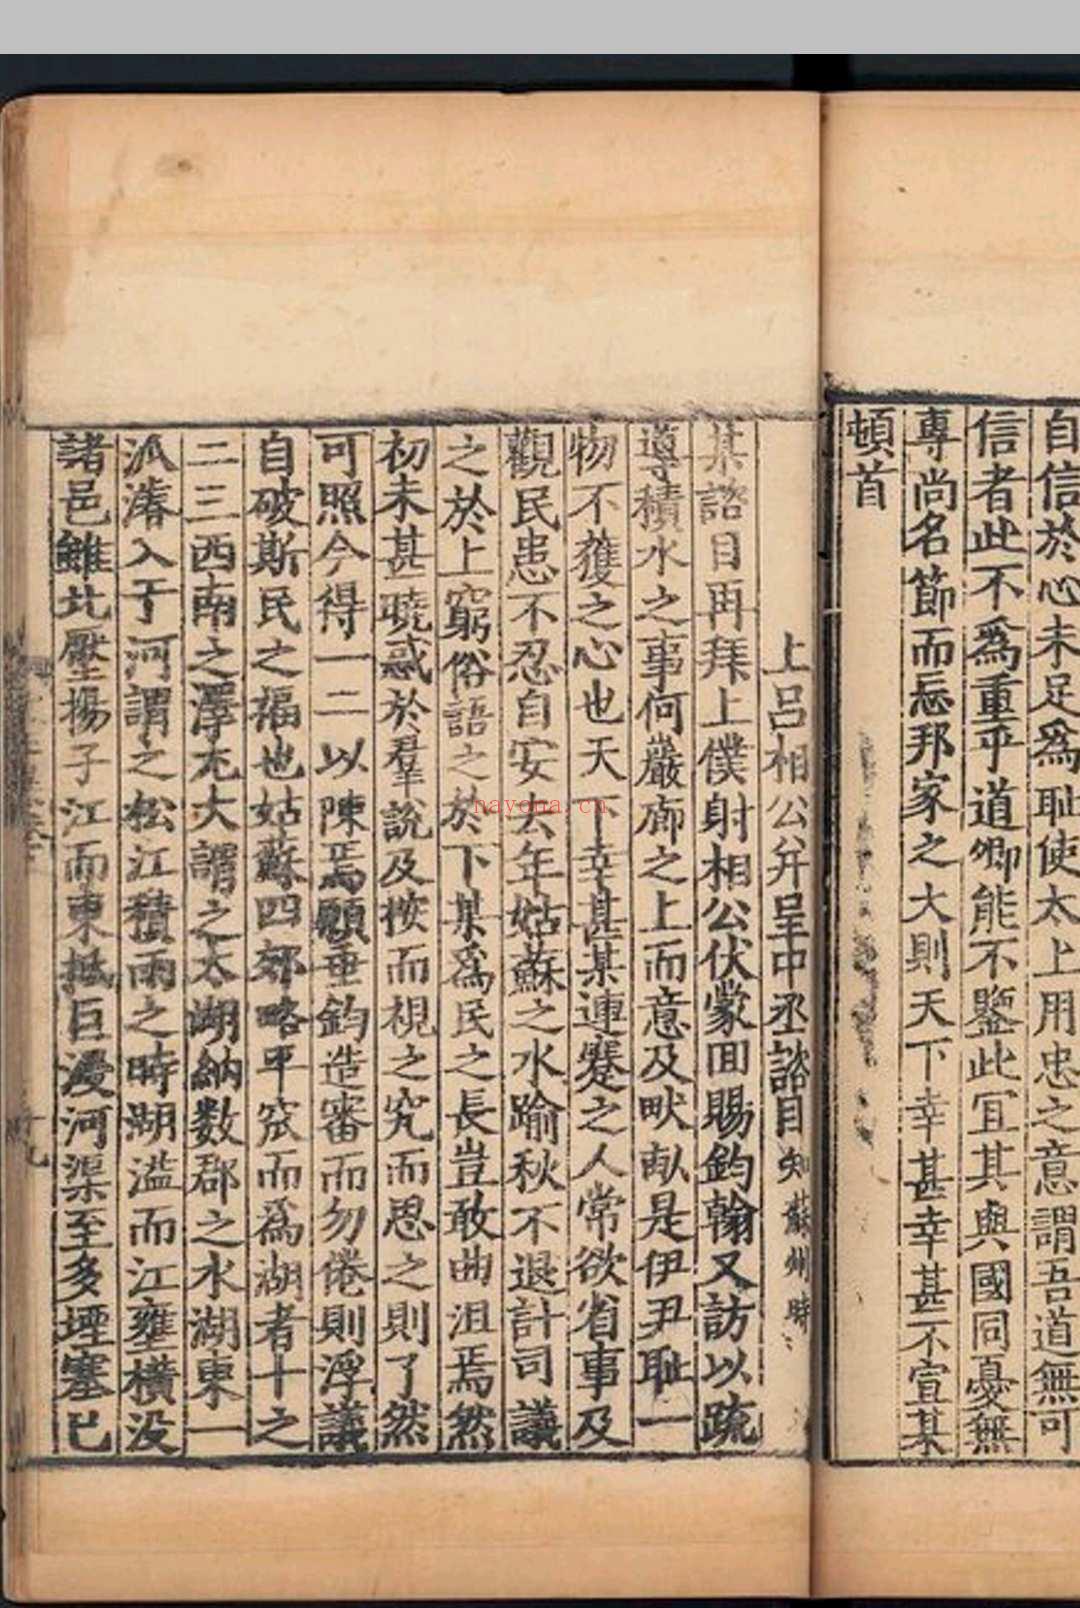 自信於心未足爲恥使太上用忠之意謂吾道無可
信者此不爲重乎道卿能不鑒此冝其與國同憂無
專尚名節而忘邦家之大則天下幸甚幸甚不宣某
頓首
上吕相公并呈中丞諮目知蘇州時
某諮目再拜上僕射相公伏蒙囬賜鈞翰又訪以疏
導積水之事何巖廊之上而意及畎畝是伊尹耻一
物不獲之心也天下幸甚某連蹇之人常欲省事及
觀民患不忍自安去年姑蘇之水踰秋不退計司議
之於上窮俗語之於下某爲民之長豈敢曲沮焉然
初未甚曉惑於羣説及按而視之究而思之則了然
可照今得一二以陳焉願垂鈞造審而勿倦則浮議
自破斯民之福也姑蘇四郊略平窊而爲湖者十之
二三西南之澤尤大謂之太湖納數郡之水湖東一
派濬入于河謂之松江積雨之時湖溢而江壅横没
諸邑雖北壓揚子江而東抵巨浸河渠至多堙塞已
nayona.cn